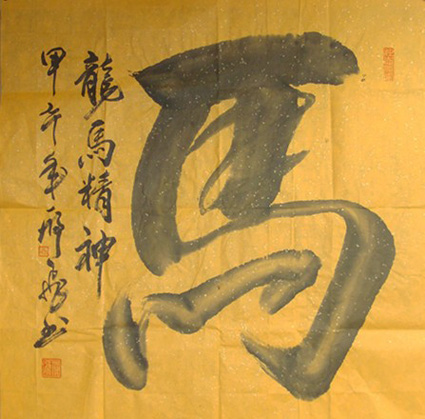 馬
龍馬精神
甲午年
书